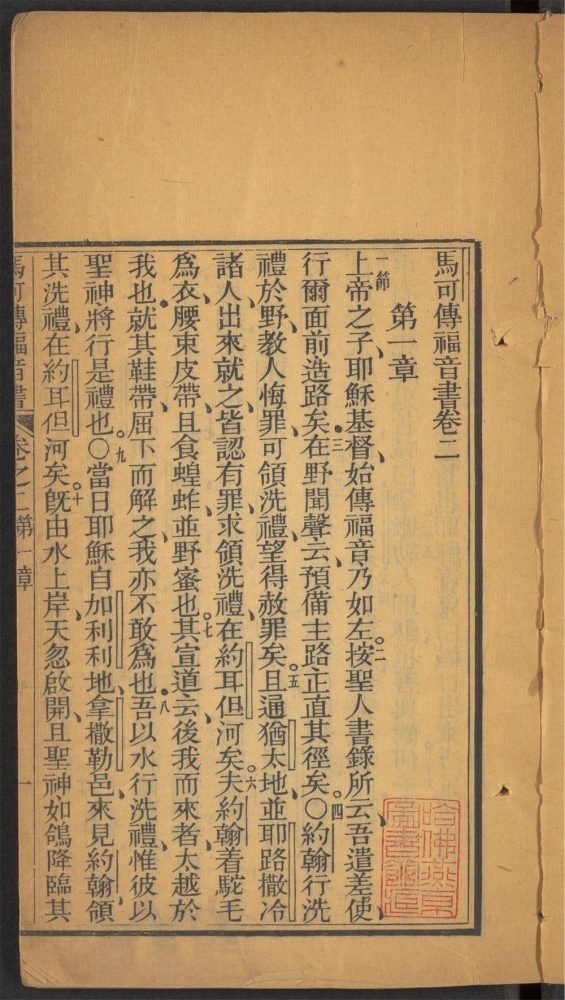 馬可傳福音書卷二
第一章
一節上帝之子、耶穌基督始傳福音、乃如左。二按聖人書錄所云、吾遣差使
行爾面前造路矣。三在野聞聲云、預備主路正直其徑矣。〇四約翰行洗
禮於野、教人悔罪、可領洗禮、望得赦罪矣。五且通猶太地、並耶路撒冷
諸人出來就之、皆認有罪、求領洗禮、在約耳但河矣。六夫約翰着駝毛
爲衣、腰束皮帶、且食蝗蚱、並野蜜也。七其宣道云、後我而來者、大越於
我也、就其鞋帶、屈下而解之、我亦不敢爲也。八吾以水行洗禮、惟彼以
聖神將行是禮也。〇九當日耶穌自加利利地、拿撒勒邑、來見約翰領
其洗禮、在約耳但河矣。十旣由水上岸、天忽啟開、且聖神如鴿降臨其
馬可傳福音書 卷之二第一章 一
哈佛燕京